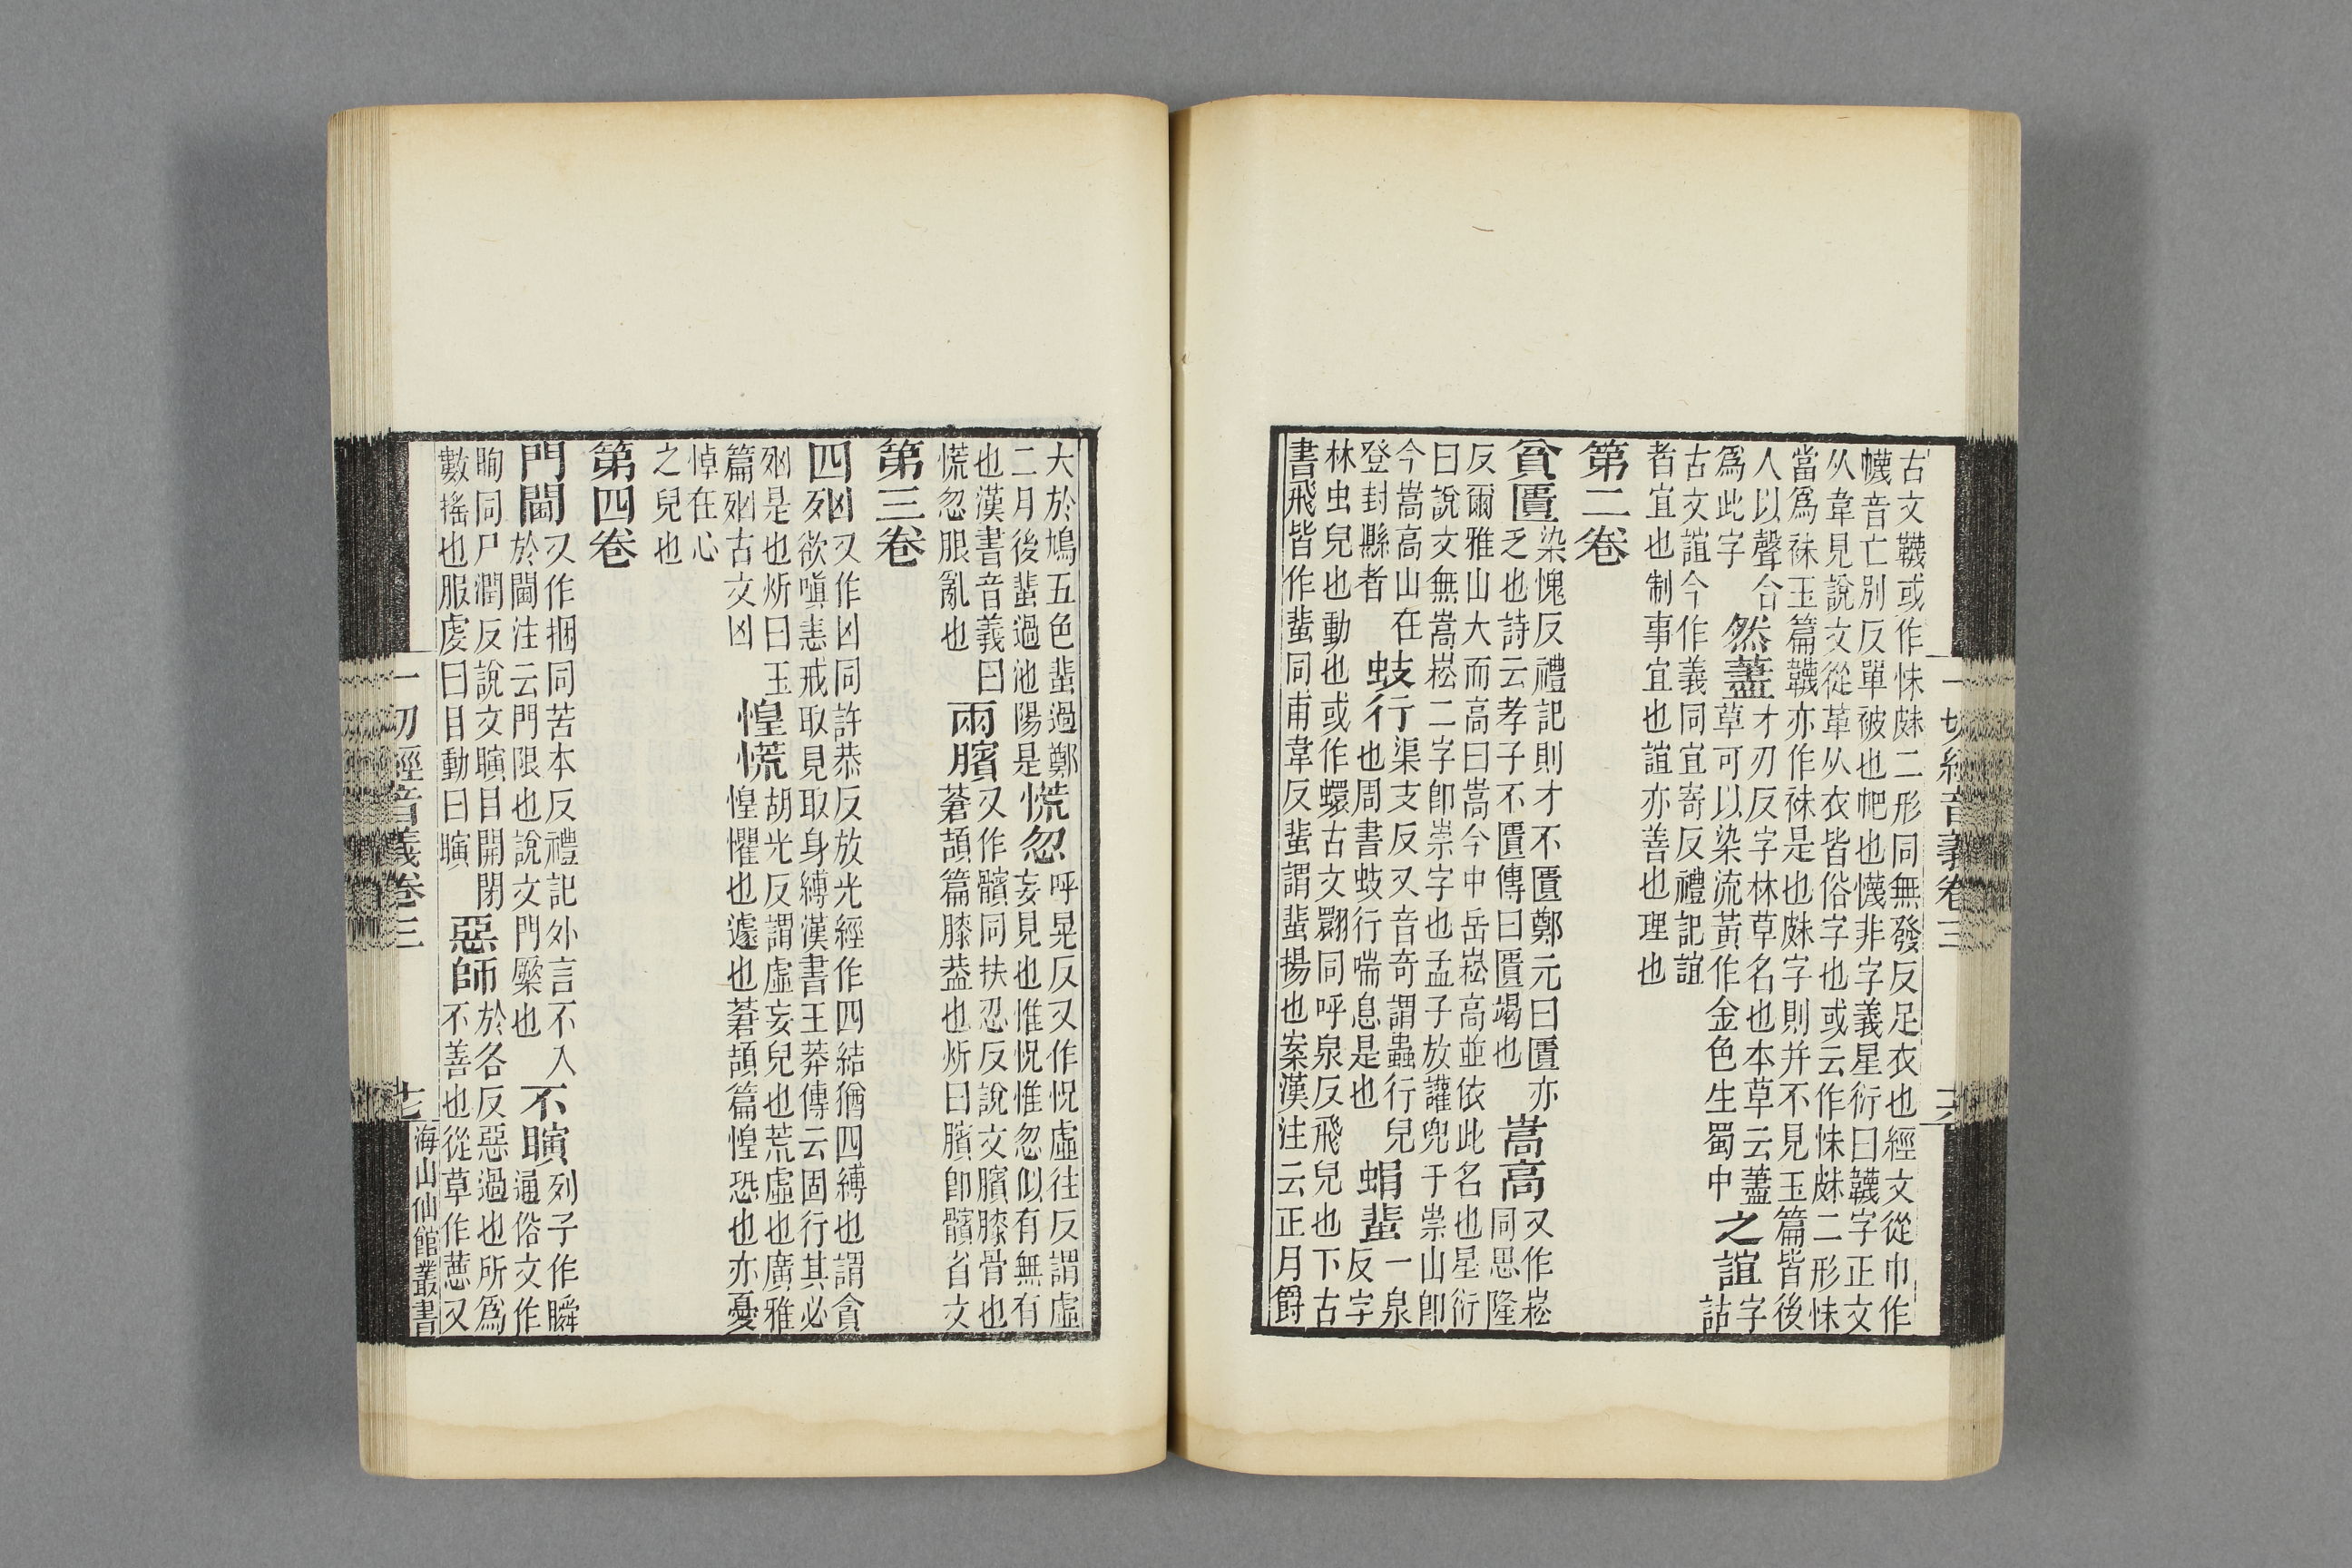 古文韈或作怽䟫二形同無發反足衣也經文從巾作
幭音亡別反單被也帊也幭非字義星衍曰韈字正文
从韋見說文從革从衣皆俗字也或云作怽䟫二形怽
當爲袜玉篇韈亦作袜是也䟫字則并不見玉篇皆後
人以聲合
爲此字
然藎才刃反字林草名也本草云藎
草可以染流黃作金色生蜀中
之誼字
詁
古文誼今作義同宜寄反禮記誼
者宜也制事宜也誼亦善也理也
第二卷
貧匱染愧反禮記則才不匱鄭元曰匱亦
乏也詩云孝子不匱傳曰匱竭也
嵩高又作崧
同思隆
反爾雅山大而高曰嵩今中岳崧高並依此名也星衍
曰說文無嵩崧二字卽崇字也孟子放讙兜于崇山卽
今嵩高山在
登封縣者
蚑行渠支反又音奇謂蟲行皃
也周書蚑行喘息是也
蜎蜚一泉
反字
林虫皃也動也或作蠉古文翾同呼泉反飛皃也下古
書飛皆作蜚同甫韋反蜚謂蜚揚也案漢注云正月爵
一切經音義卷三
十六
大於鳩五色蜚過鄭
二月後蜚過池陽是
慌忽呼晃反又作怳虛往反謂虛
妄見也惟怳惟忽似有無有
也漢書音義曰
慌忽眼亂也
兩臏又作髕同扶忍反說文臏膝骨也
蒼頡篇膝葢也炘曰臏卽髕省文
第三卷
四㓙又作凶同許恭反放光經作四結猶四縛也謂貪
欲嗔恚戒取見取身縛漢書王莽傳云固行其必
㓙是也炘曰玉
篇㓙古文凶
惶慌胡光反謂虛妄皃也荒虛也廣雅
惶懼也遽也蒼頡篇惶恐也亦憂
悼在心
之皃也
第四卷
門閫又作捆同苦本反禮記外言不入
於閫注云門限也說文門橜也
不瞚列子作瞬
通俗文作
眴同尸潤反說文瞚目開閉
數搖也服虔曰目動曰瞚
惡師於各反惡過也所爲
不善也從草作蕙又
一切經音義卷三
十七
海山仙館叢書